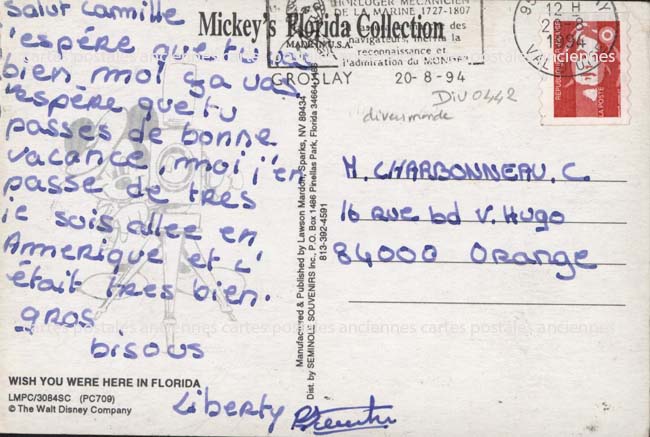 Salut Camille
j'espére que tu vas
bien moi ça va
j'espère que tu
passes de bonne
vacance, moi j'en
passe de tres
je suis allee en
Amerique et c'
était tres bien.
gros
bisous
Liberty
WISH YOU WERE HERE IN FLORIDA
LMPC/3084SC (PC709)
© The Walt Disney Company
Mickey's Florida Collection
MADE IN U.S.A.
Manufactured & Published by Lawson Mardon, Sparks, NV 89434
Dist. by SEMINOLE SOUVENIRS Inc., P.O. Box 1486 Pinellas Park, Florida 34664
813-392-4591
HORLOGER MECANICIEN
DE LA MARINE 1727-1807
des
navigateurs, merita la
reconnaissance et
l'admiration du MONDE
GROSLAY 20-8-94
12 H
1994
VAL
LA POSTE
DIV0442
divers monde
M. CHARBONNEAU. C.
16 rue bd V. Hugo
84000 Orange
cartes postales anciennes cartes postales anciennes cartes postales anciennes